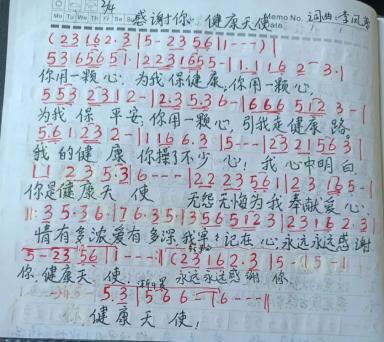 2/4 感谢你 健康天使 Memo No. 词曲:李凤
Mo Tu We Th Fr Sa Su Date
(23162·3|5-23561|---)|
5365651·|2231655-|1·1162-3·|
你用一颗心,为我保健康,你用一颗心,
5532312-|2·35·36-|6665123-|
为我保平安,你用一颗心,引我走健康路
5·61232-|1166·3|5---|2321563|
我的健康你操了不少心!我心中明白
11235·3|6---|2223561|2312165-|
你是健康天使 无怨无悔为我奉献爱心
||:35·36·|76·35·|3565123|23162·3|
情有多浓爱有多深,我牢牢记在心,永远永远感谢
5-2356|1---:||(23162·3|5-|15-|
你健康天使. 永远永远感谢你
5·3|566-|6---||
你健康天使!